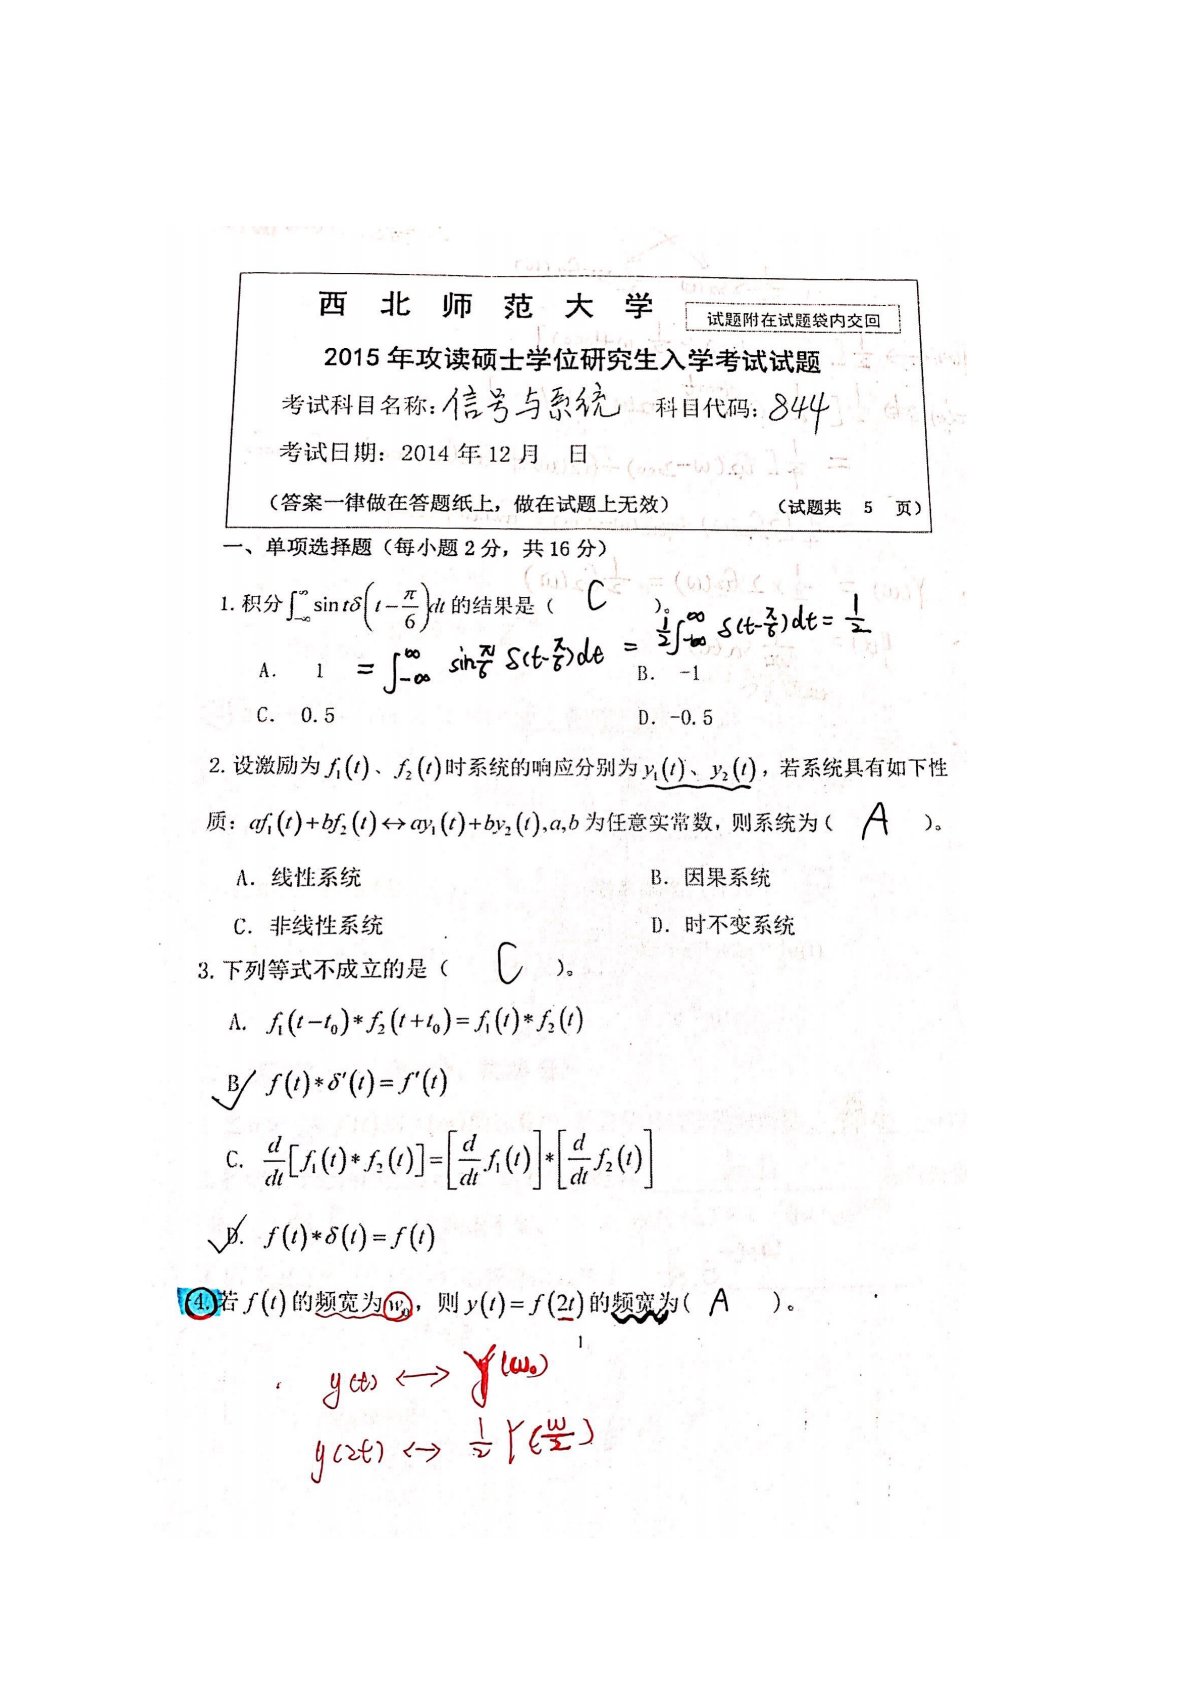 西北师范大学
试题附在试题袋内交回
2015年攻读硕士学位研究生入学考试试题
考试科目名称:信号与系统 科目代码:844
考试日期:2014年12月 日
(答案一律做在答题纸上,做在试题上无效) (试题共 5 页)
一、单项选择题(每小题2分,共16分)
1.积分∫_{-∞}^{∞} sin tδ(t-π/6)dt的结果是( C )。
= ∫_{-∞}^{∞} sin π/6 δ(t-π/6)dt = 1/2∫_{-∞}^{∞} δ(t-π/6)dt = 1/2
A. 1 B. -1
C. 0.5 D. -0.5
2.设激励为f₁(t)、f₂(t)时系统的响应分别为y₁(t)、y₂(t),若系统具有如下性
质:af₁(t)+bf₂(t)↔ay₁(t)+by₂(t),a,b为任意实常数,则系统为( A )。
A. 线性系统 B. 因果系统
C. 非线性系统 D. 时不变系统
3.下列等式不成立的是( C )。
A. f₁(t-t₀)*f₂(t+t₀)=f₁(t)*f₂(t)
B. f(t)*δ′(t)=f′(t)
C. d/dt[f₁(t)*f₂(t)]=[d/dt f₁(t)]*[d/dt f₂(t)]
D. f(t)*δ(t)=f(t)
4.若f(t)的频宽为w₀,则y(t)=f(2t)的频宽为( A )。
1
y(t) ↔ Y(ω₀)
y(2t) ↔ 1/2 Y(w/2)